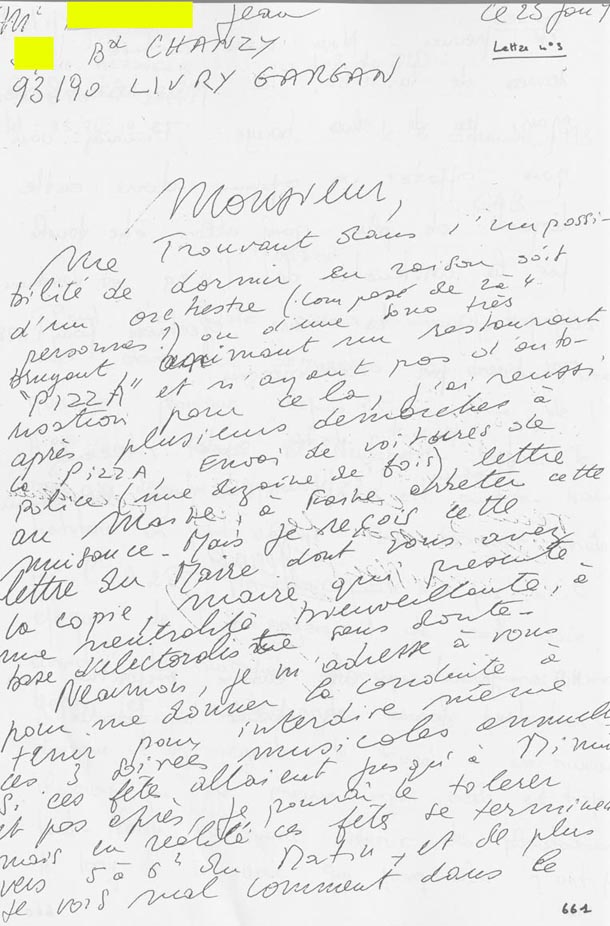 Jean Le 25 Jan
Bd CHANZY. Lettre n°3
93190 LIVRY GARGAN
Monsieur,
Me Trouvant dans l'impossi-
bilité de dormir en raison soit
d'un orchestre (composé de 2 à 4
personnes ?) ou d'une sono très
bruyant animant un restaurant
"PIZZA" et n'ayant pas d'auto-
risation pour cela, j'ai réussi
après plusieurs démarches à
la PIZZA Envoi de voitures de
police (une dizaine de fois) lettre
au Maire, à faire arreter cette
nuisance - Mais je reçois cette
lettre du Maire dont vous avez
la copie, maire qui presente
une neutralité bienveillante, à
base d'electoralisme sans doute -
Néanmoins, je m'adresse à vous
pour me donner la conduite à
tenir pour interdire même
ces 3 soirées musicales annuell
Si ces fête allaient jusqu'à Minui
et pas après, je pourrai le tolerer
mais en réalité ces fête se terminen
vers 5 à 6h du Matin, et de plus
Je vois mal comment dans le
661